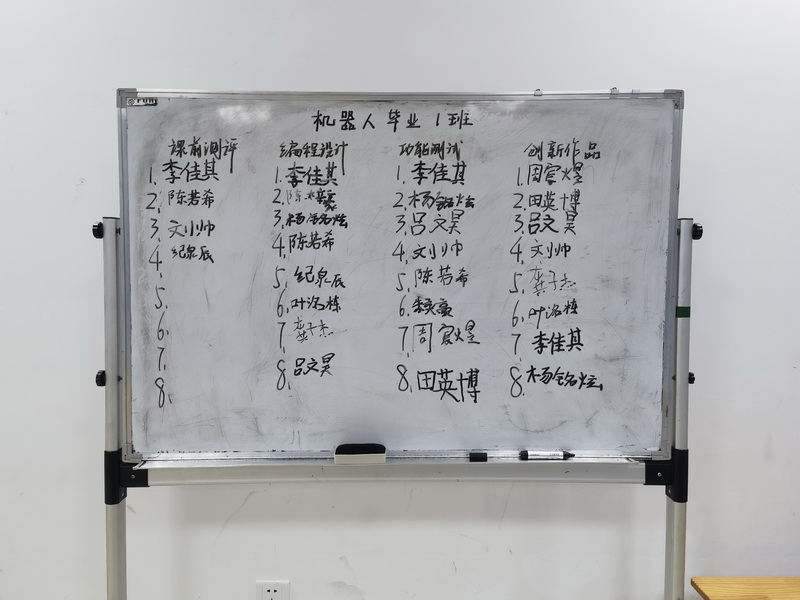 机器人毕业1班
课前测评
1. 李佳其
2. 陈若希
3. 刘小帅
4. 纪泉辰
5.
6.
7.
8.
编程设计
1. 李佳其
2.
3. 杨铭炫
4. 陈若希
5. 纪泉辰
6. 叶洺栋
7. 龚子杰
8. 吕文昊
功能测试
1. 李佳其
2. 杨铭炫
3. 吕文昊
4. 刘小帅
5. 陈若希
6.
7. 周宸煜
8. 田英博
创新作品
1. 周宸煜
2. 田英博
3. 吕文昊
4. 刘小帅
5. 龚子杰
6. 叶洺栋
7. 李佳其
8. 杨铭炫